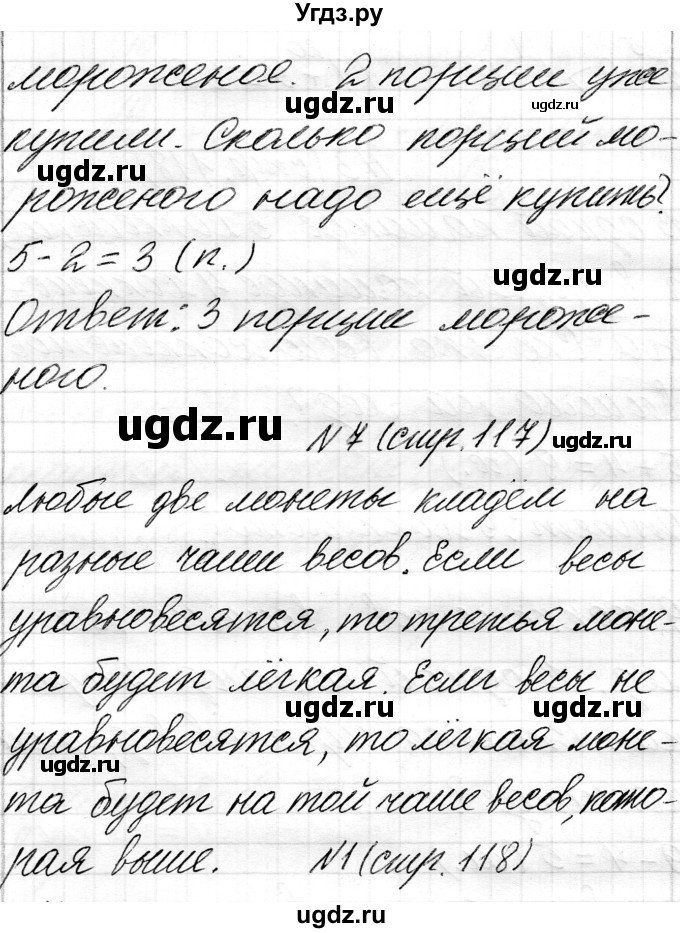 Угдз.ру
мороженое. 2 порции уже
ugdz.ru ugdz.ru
купили. Сколько порций мо-
ugdz.ru
роженого надо ещё купить?
5 - 2 = 3 (п.)
ugdz.ru
Ответ: 3 порции мороже-
ного.
ugdz.ru
№ 7 (стр. 117)
ugdz.ru
Любые две монеты кладём на
разные чаши весов. Если весы
уравновесятся, то третья моне-
та будет лёгкая. Если весы не
ugdz.ru ugdz.ru
уравновесятся, то лёгкая моне-
ugdz.ru
та будет на той чаше весов, кото-
рая выше. №1 (стр. 118)
ugdz.ru